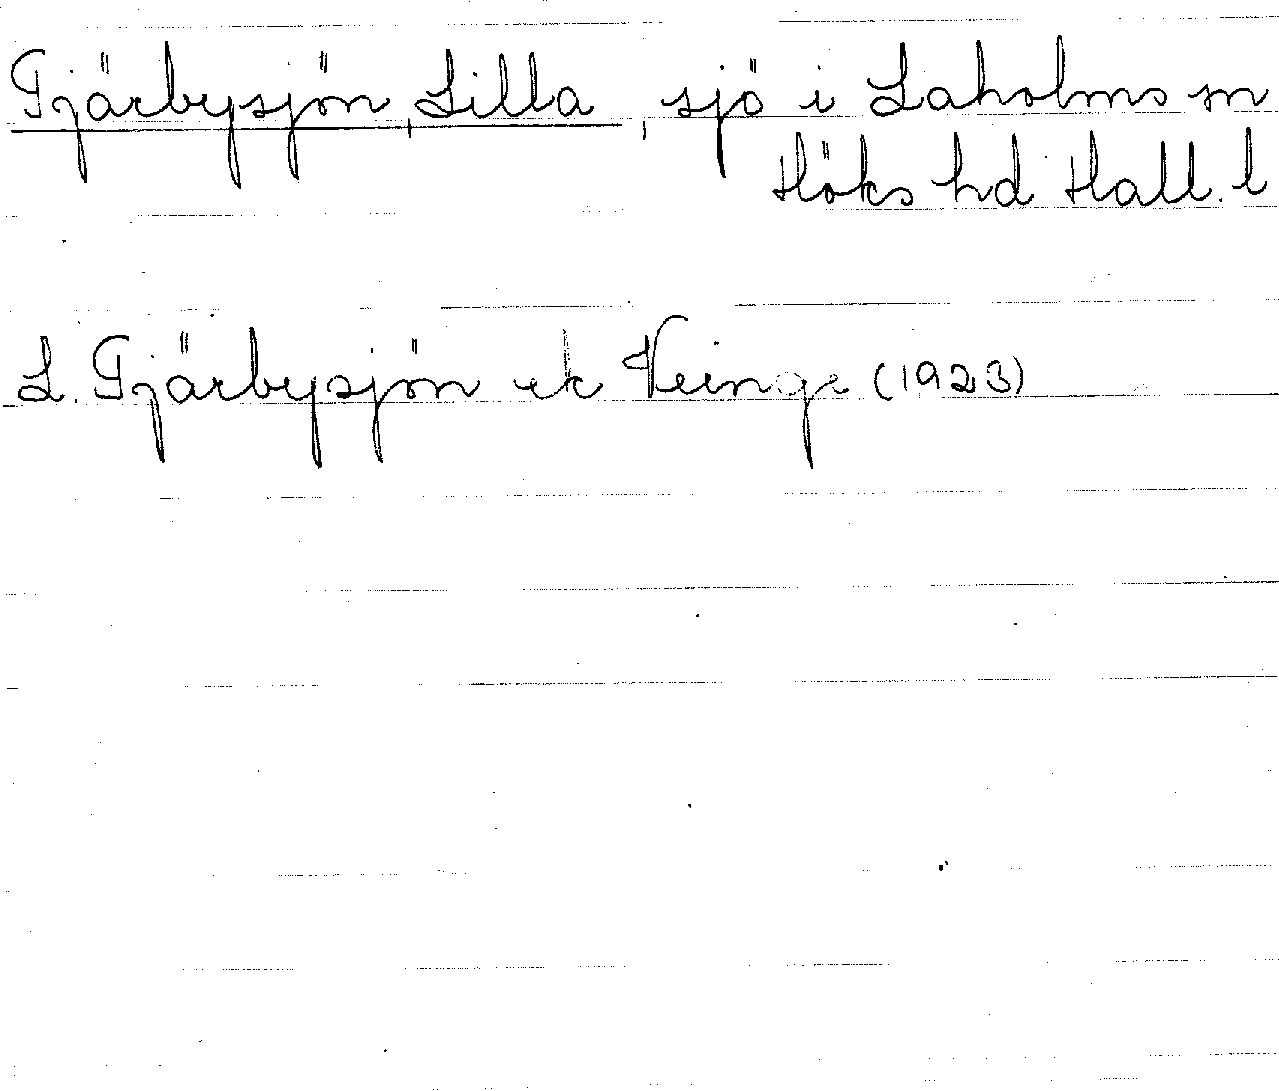 Gjärbysjön, Lilla, sjö i Laholms sn
Höks hd Hall. l
L. Gjärbysjön ek Veinge (1923)